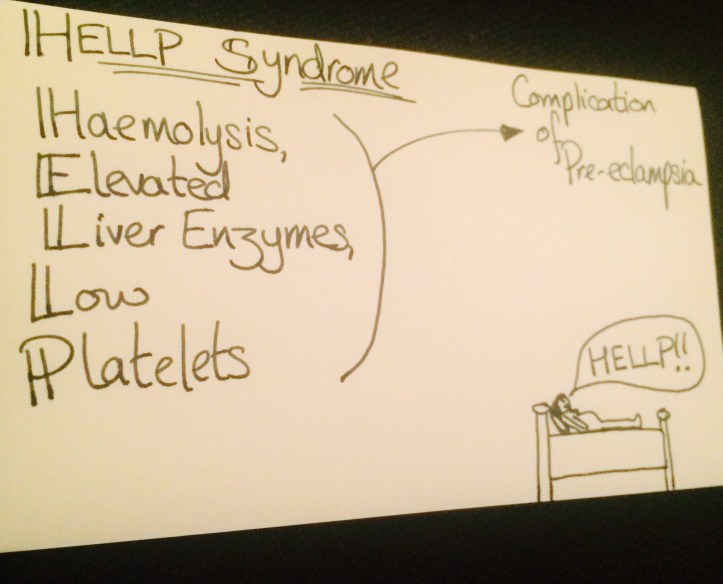 HELLP Syndrome
Haemolysis,
Elevated
Liver Enzymes,
Low
Platelets
Complication
of
Pre-eclampsia
HELLP!!